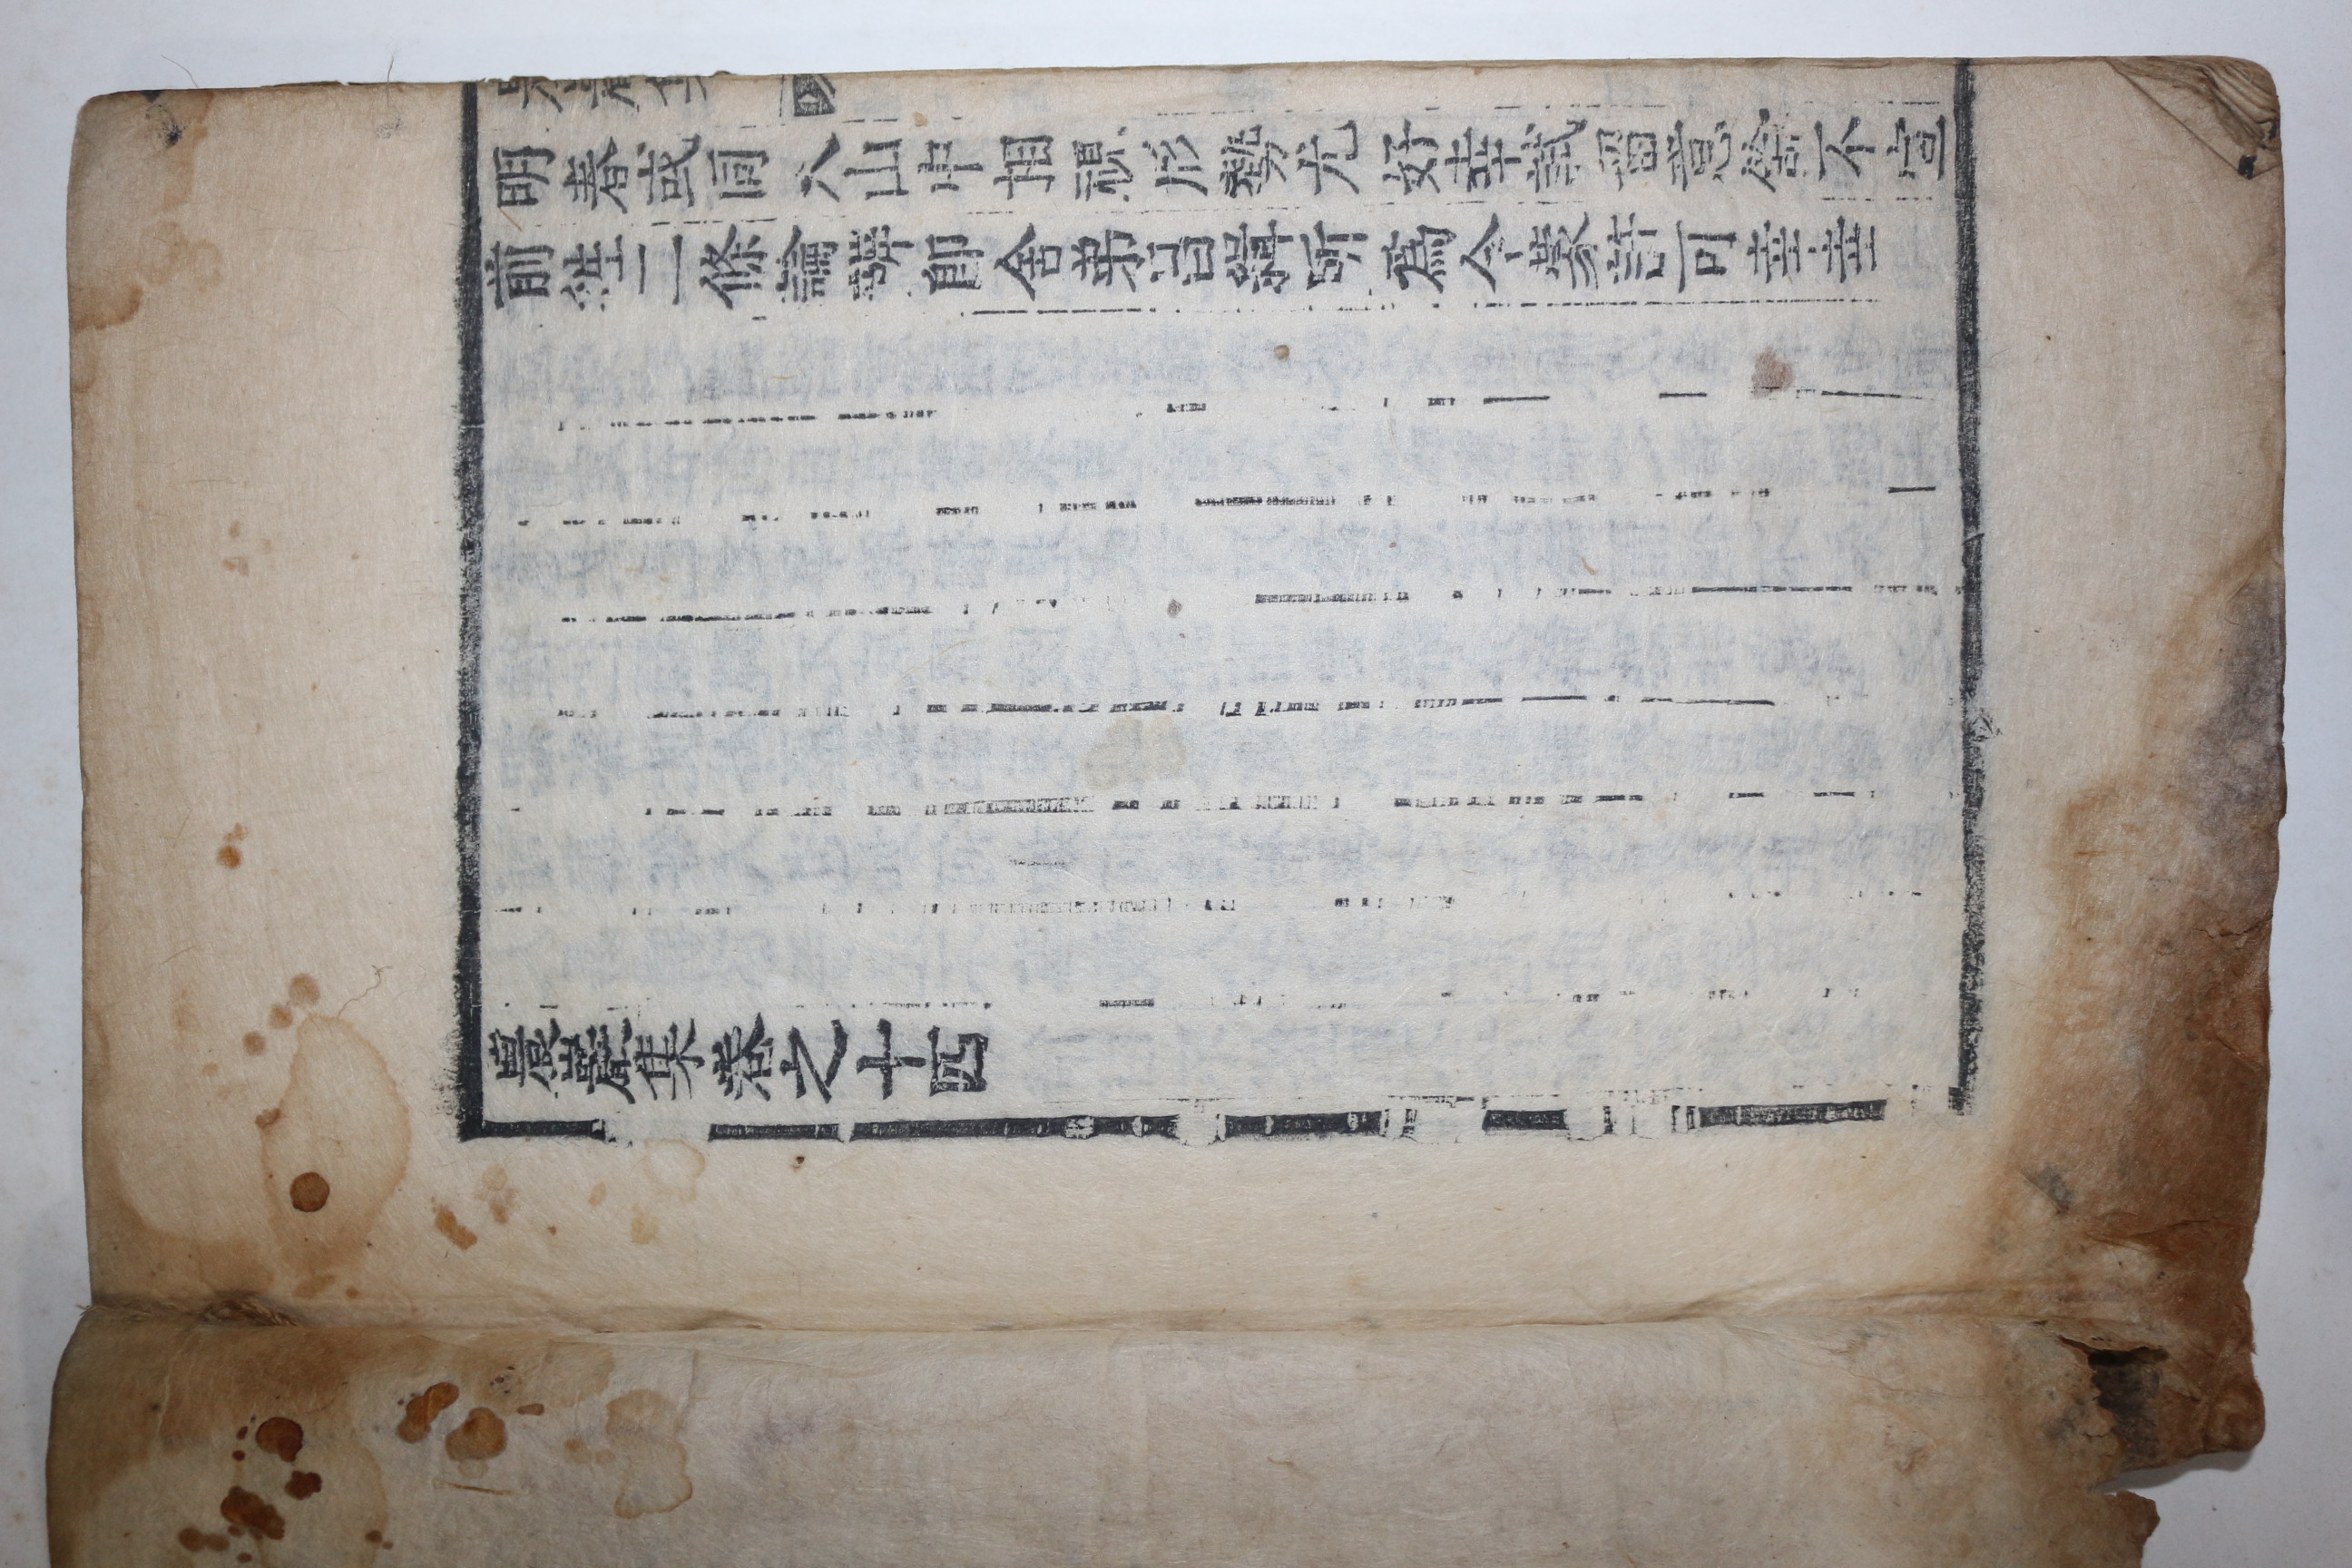 明春或同入山中相視形勢尤好幸試留意餘不宣
前徃二條論辨卽舍弟昌緝所爲今蒙許可幸幸
農巖集卷之十四